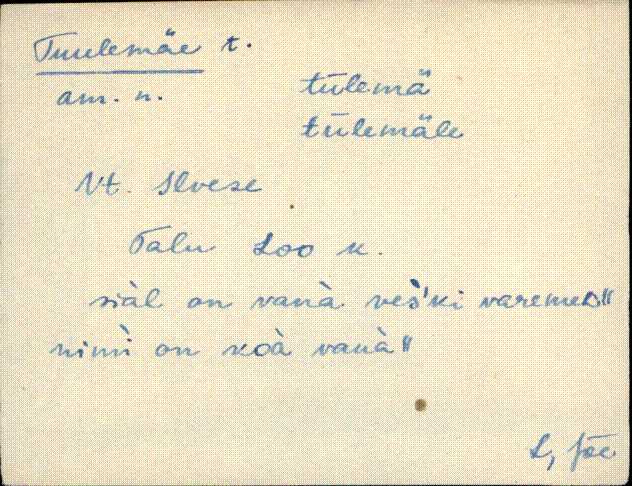 Tuulemäe t.
am. n. tūlemä
tūlemäle
Vt. Ilvese
Talu Loo k.
siàl on vanà veš'ki varemeD"
nimì on koà vanà"
L, Jõe